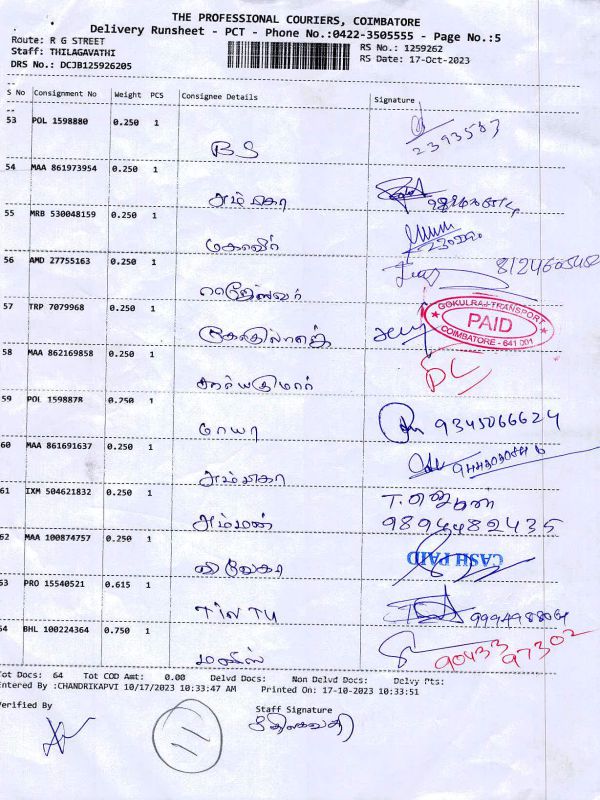 THE PROFESSIONAL COURIERS, COIMBATORE
Delivery Runsheet - PCT - Phone No.:0422-3505555 - Page No.:5
Route: R G STREET
Staff: THILAGAVATHI
DRS No.: DCJB125926205
RS No.: 1259262
RS Date: 17-Oct-2023
S No Consignment No Weight PCS Consignee Details Signature
53 POL 1598880 0.250 1
BS
2393583
54 MAA 861973954 0.250 1
அம்பிகா
55 MRB 530048159 0.250 1
மகாவீர்
56 AMD 27755163 0.250 1
ராஜேஸ்வர்
8124605452
57 TRP 7079968 0.250 1
GOKULRAJ TRANSPORT
PAID
COIMBATORE - 641 001
58 MAA 862169858 0.250 1
சூர்யகுமார்
DL
59 POL 1598878 0.250 1
மாயா
9345066624
60 MAA 861691637 0.250 1
அம்பிகா
61 IXM 504621832 0.250 1
அம்மன்
9894482435
62 MAA 100874757 0.250 1
CASH PAID
63 PRO 15540521 0.615 1
TIN TU
64 BHL 100224364 0.750 1
மணிஸ்
90433
97302
Tot Docs: 64 Tot COD Amt: 0.00 Delvd Docs: Non Delvd Docs: Delvy Pts:
Entered By :CHANDRIKAPVI 10/17/2023 10:33:47 AM Printed On: 17-10-2023 10:33:51
Verified By
Staff Signature